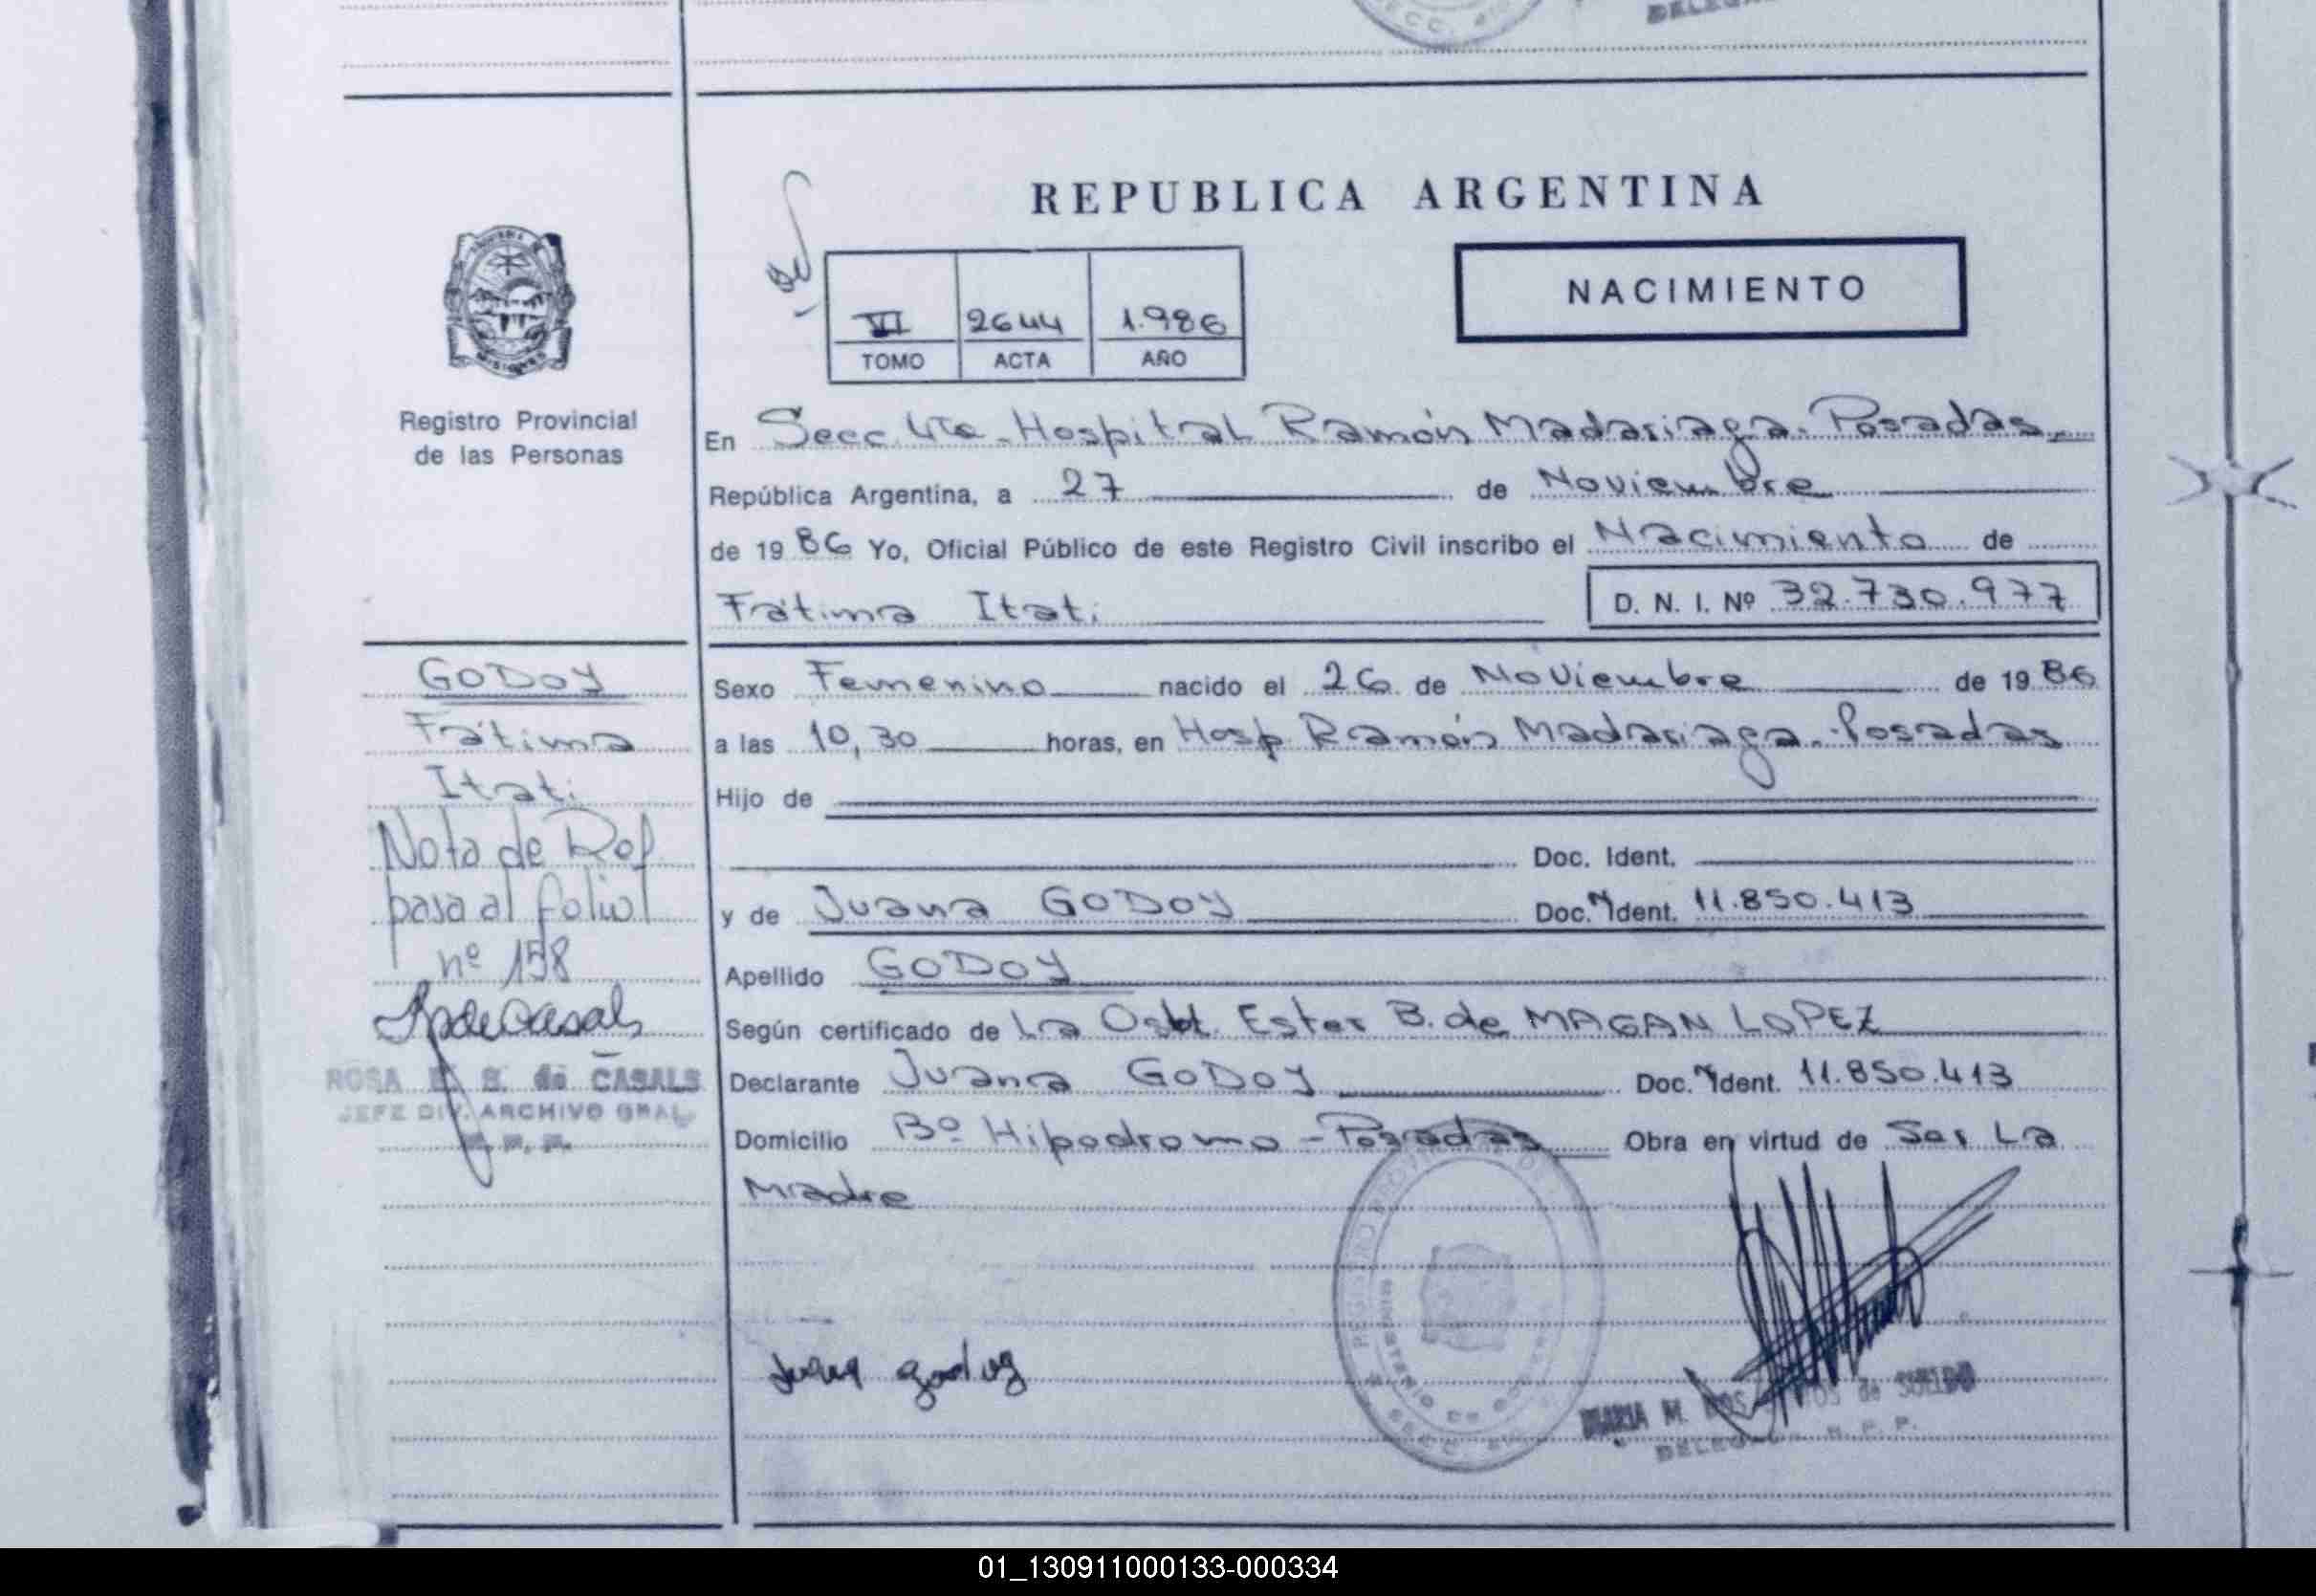 REPUBLICA ARGENTINA
NACIMIENTO
VI 2644 1.986
TOMO ACTA AÑO
Registro Provincial
de las Personas
En Secc 4ta. Hospital Ramón Madariaga. Posadas.
República Argentina, a 27 de Noviembre
de 1986 Yo, Oficial Público de este Registro Civil inscribo el Nacimiento de
Fátima Itatí D. N. I. Nº 32.730.977
GODOY
Fátima
Itatí
Nota de Ref.
pasa al folio
nº 158
ROSA E. S. de CASALS
JEFE DIV. ARCHIVO GRAL
Sexo Femenino nacido el 26 de Noviembre de 1986
a las 10,30 horas, en Hosp Ramón Madariaga. Posadas
Hijo de
Doc. Ident.
y de Juana GODOY Doc. Ident. 11.850.413
Apellido GODOY
Según certificado de La Obst. Ester B. de MAGAN LOPEZ
Declarante Juana GODOY Doc. Ident. 11.850.413
Domicilio Bº Hipodromo - Posadas Obra en virtud de Ser La
Madre
Juana godoy
MARIA M. de SUELDO
R. P. P.
01_130911000133-000334